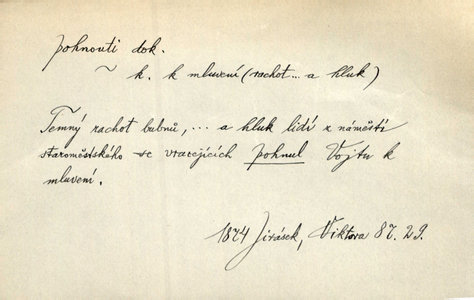 pohnouti dok.
~ k. k mluvení (rachot ... a hluk)
Temný rachot bubnů, ... a hluk lidí z náměstí
staroměstského se vracejících pohnul Vojtu k
mluvení.
1874 Jirásek, Viktora 87. 29.